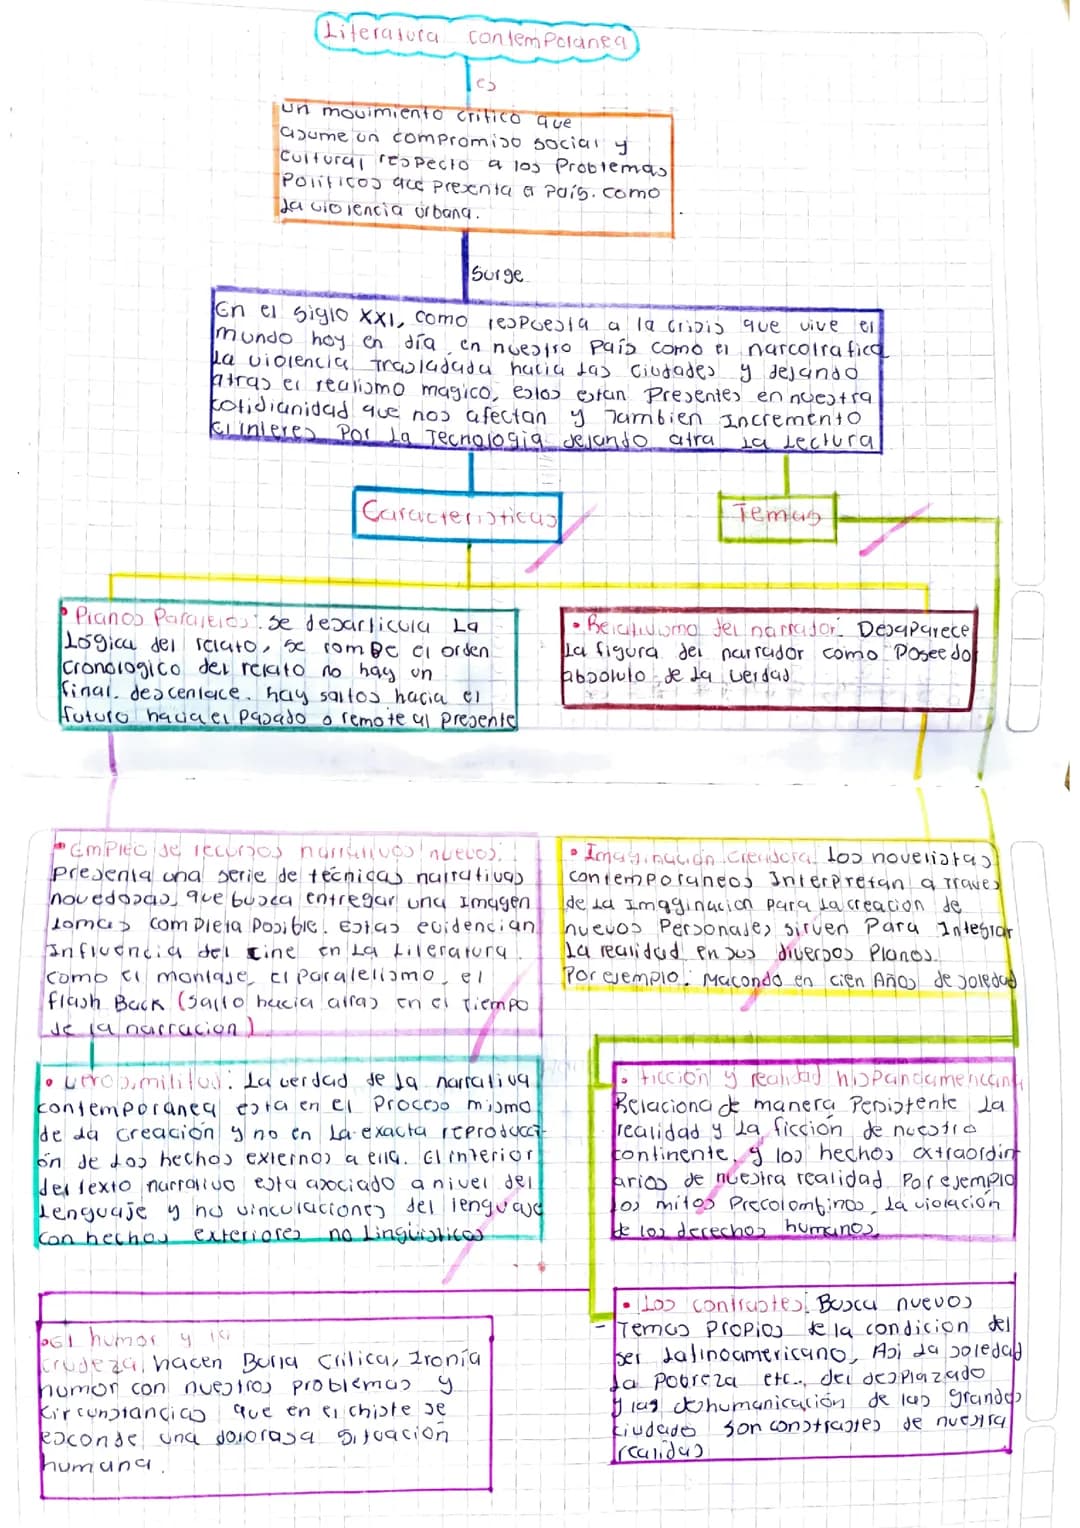 Literatura contemporanea
es
un movimiento critico que
asume un compromiso social y
cultural respecto a los Problemas
Politicos que presenta el país. como
La violencia urbana.
Surge
En el siglo XXI, como respuesta a la crisis que vive el
mundo hoy en día en nuestro país como el narcotrafico
La violencia Trasladada hacia las ciudades y dejando
atras el realismo magico, estos estan Presentes en nuestra
cotidianidad que nos afectan y Tambien Incremento
el interes Por la Tecnologia dejando atra la Lectura
Caracteristicas
Temas
• Planos Paralelos: se desarticula La
Lógica del relato, se rompe el orden
cronologico del relato no hay un
final. descenlace. hay saltos hacia el
futuro hacia el pasado o remote al presente
• Relativismo del narrador. Desaparece
La figura del narrador como Poseedo
absoluto de la verdad
• Empleo de recursos narrativos nuevos.
Presenta una serie de técnicas narrativas
novedosas que busca entregar una Imagen
lomas completa Posible. Estas evidencian
Influencia del cine en La Literatura
como el montaje, el paralelismo, el
flash Back (salto hacia atras en el Tiempo
de la narracion)
• Imaginación creadora. los novelistas
contemporaneos Interpretan a traves
de la Imagginacion para la creacion de
nuevos Personajes sirven Para Integrar
La realidad en sus diversos Planos.
Por ejemplo: Macondo en cien Años de soledad
• verosimilitud: La verdad de la narrativa
contemporanea esta en el Proceso mismo
de la creación y no en La exacta reproducci-
ón de los hechos externos a ella. El interior
del texto narrativo esta asociado a nivel del
Lenguaje y no vinculaciones del lenguaje
con hechos exteriores no Lingüisticos
• ficción y realidad hispanoamericana
Relaciona de manera Persistente La
realidad y la ficción de nuestro
continente, y los hechos extraordin
arios de nuestra realidad Por ejemplo
los mitos Precolombinos, la violación
de los derechos humanos.
• El humor y la
crudeza, hacen Burla critica, Ironía
humor con nuestros problemas y
circunstancias que en el chiste se
esconde una dolorasa situación
humana.
• Los contrastes. Busca nuevos
Temas propios de la condicion del
ser latinoamericano, Asi la soledad
La pobreza etc., del desplazado
y las deshumanicación de las grandes
ciudades son constrastes de nuestra
realidad